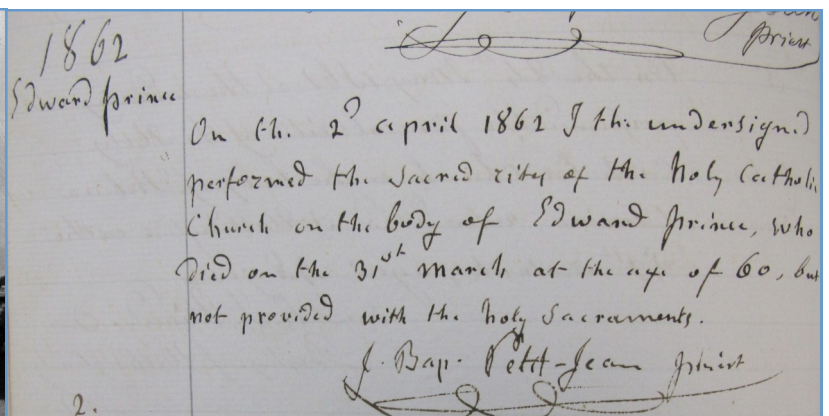 Priest
1862
Edward Prince
On the 2d april 1862 I the undersigned
performed the Sacred rites of the holy Catholic
Church on the body of Edward Prince, who
died on the 31st march at the age of 60, but
not provided with the holy Sacraments.
J. Bap. Petit-Jean priest
2.